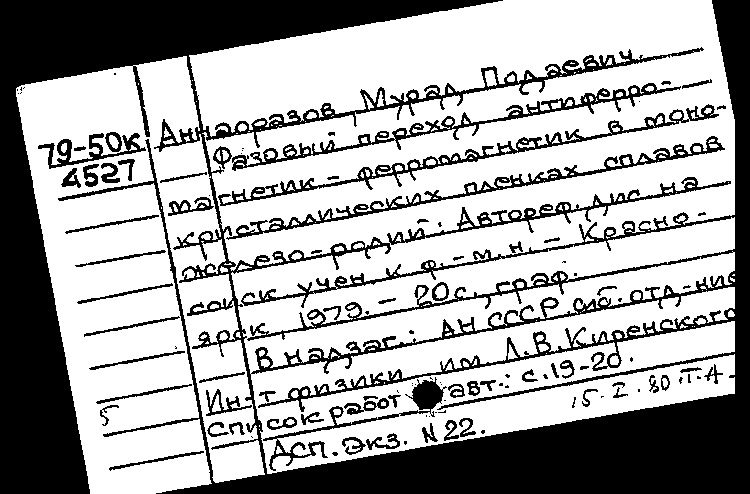 79-50к
4527
Аннаоразов, Мурад Подаевич.
Фазовый переход антиферро-
магнетик - ферромагнетик в моно-
кристаллических пленках сплавов
железо-родий: Автореф. дис на
соиск учен. к ф.-м.н. - Красно-
ярск, 1979. - 20с., граф.
В надзаг.: АН СССР. Сиб. отд-ние
Ин-т физики им Л.В. Киренского
Список работ авт.: с.19-20.
5
15.I.80.Т.А.
ДСП. Экз. N 22.